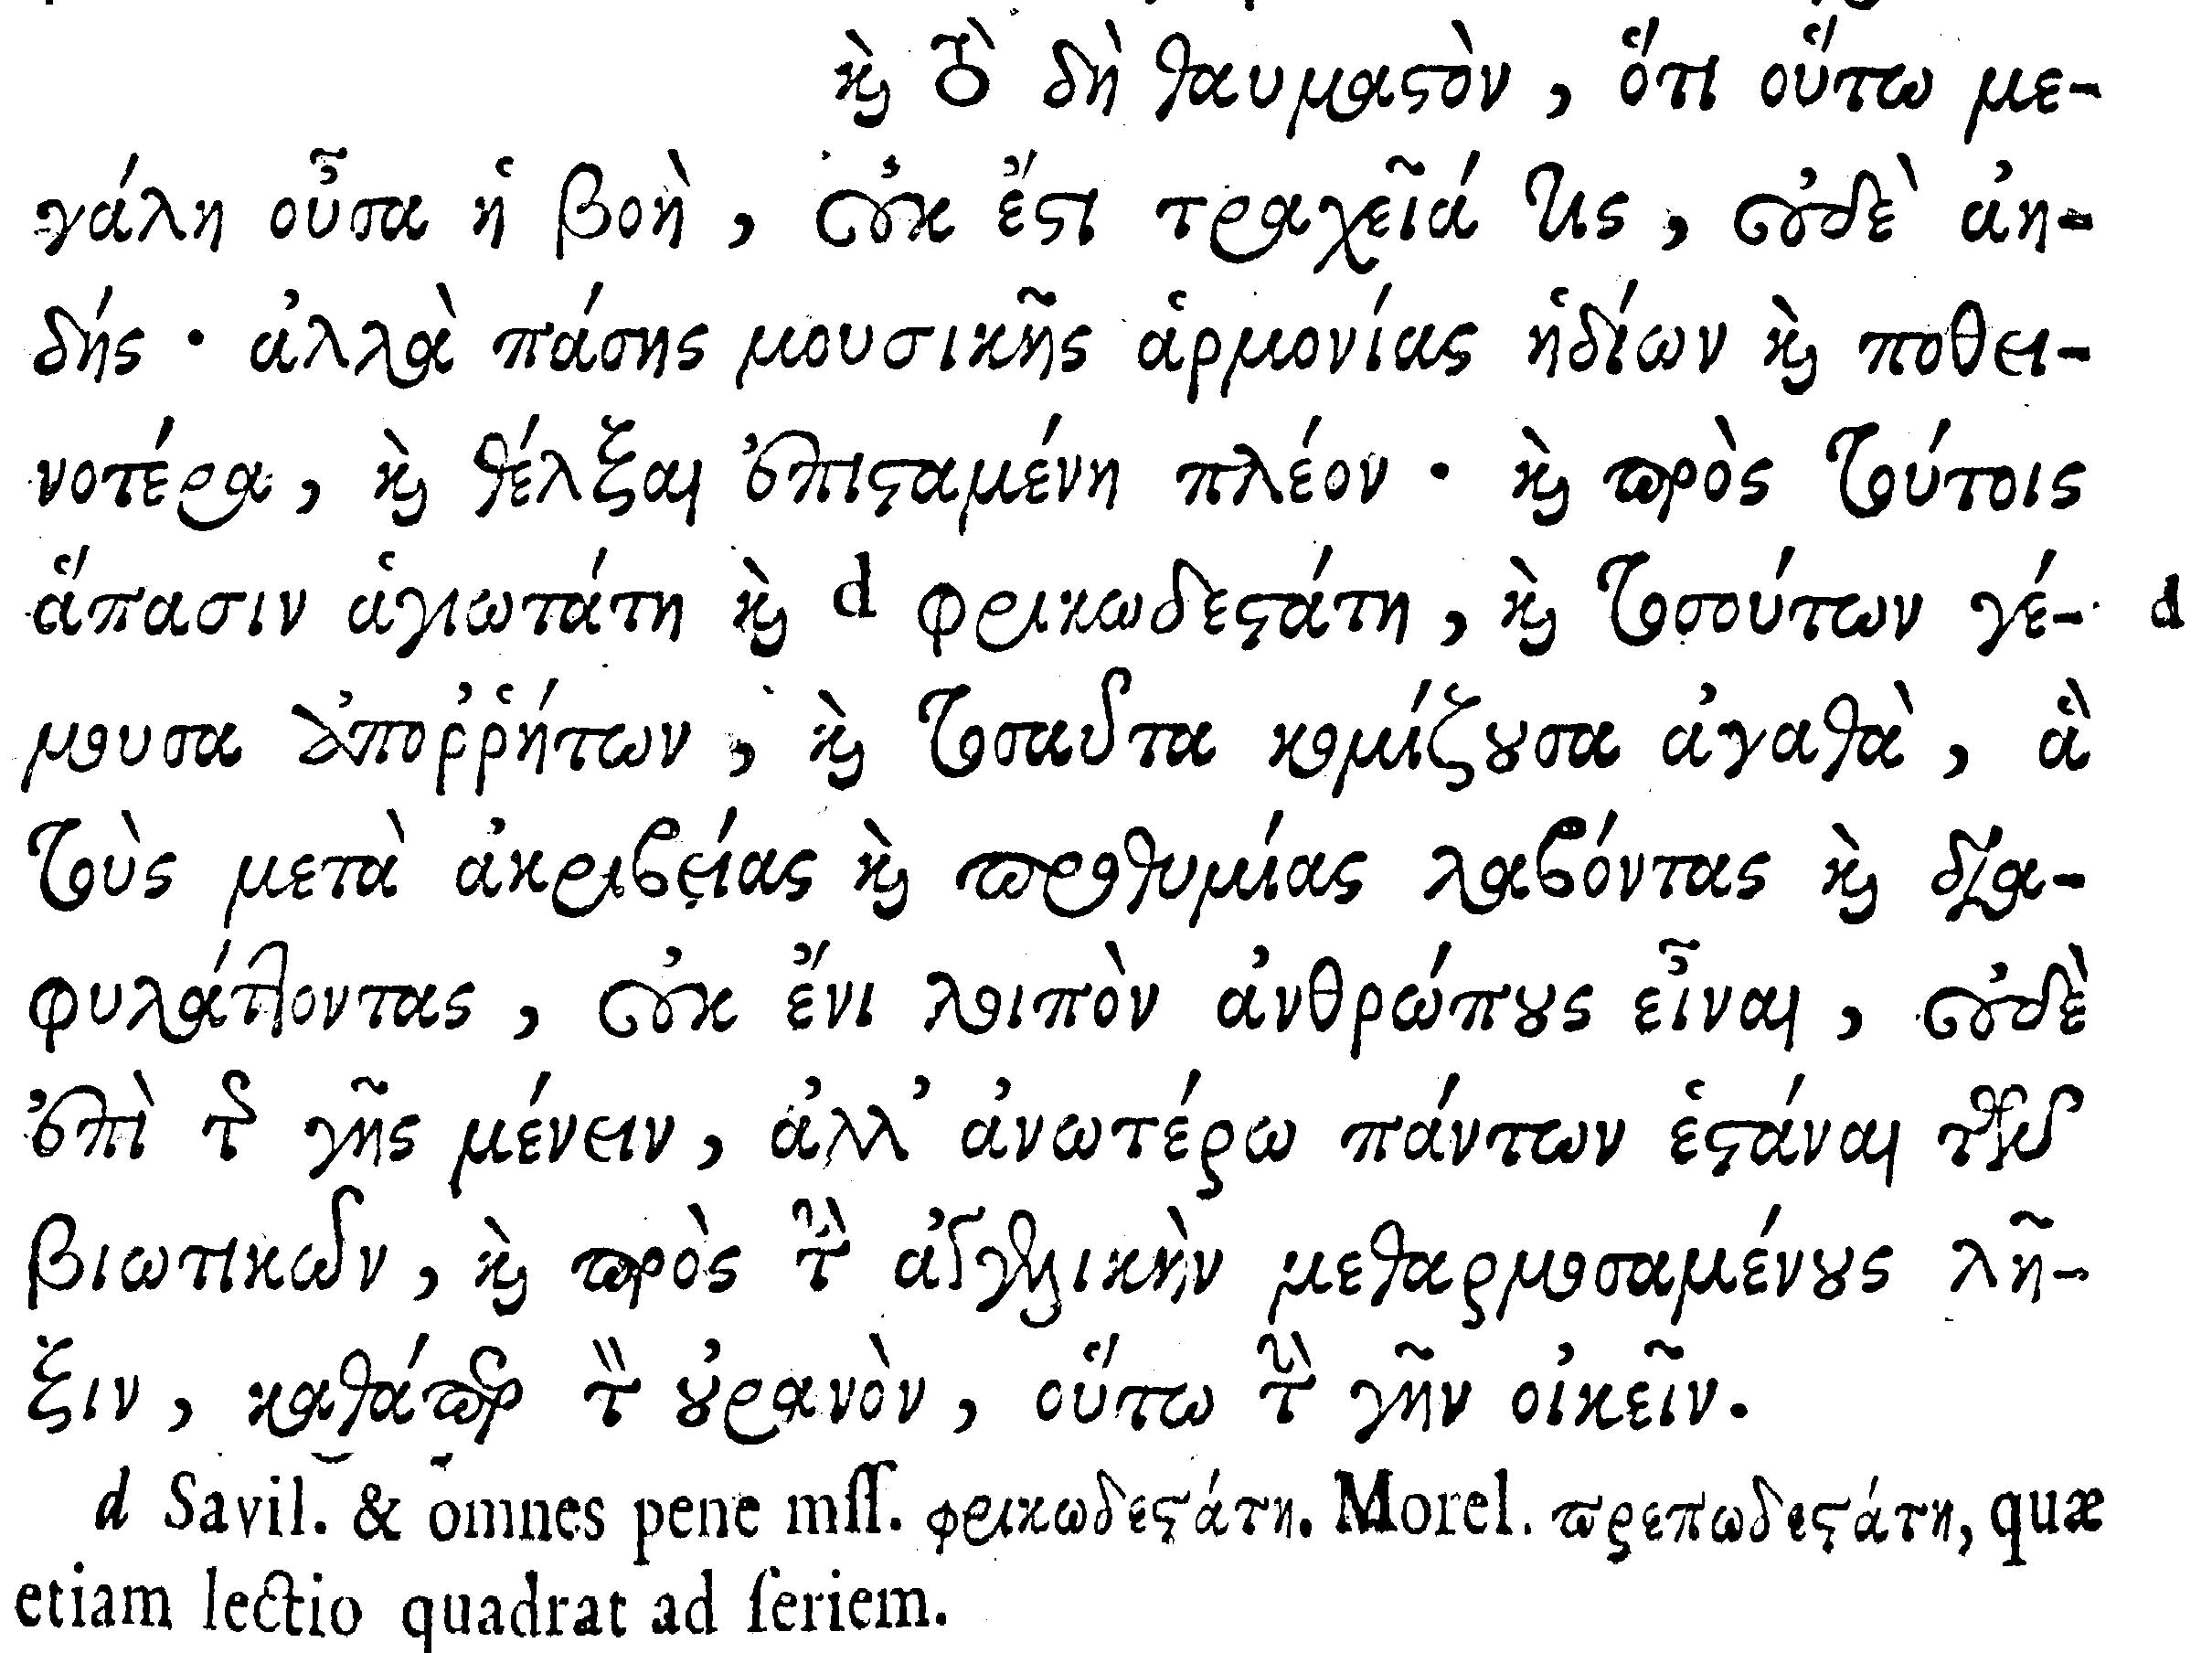 καὶ τὸ δὴ θαυμαστὸν, ὅτι οὕτω με-
γάλη οὖσα ἡ βοὴ, οὐκ ἔστι τραχεῖά τις, οὐδὲ ἀη-
δής· ἀλλὰ πάσης μουσικῆς ἁρμονίας ἡδίων καὶ ποθει-
νοτέρα, καὶ θέλξαι ἐπισταμένη πλέον· καὶ πρὸς τούτοις
ἅπασιν ἁγιωτάτη καὶ d φρικωδεστάτη, καὶ τοσούτων γέ- d
μουσα ἀποῤῥήτων, καὶ τοσαῦτα κομίζουσα ἀγαθὰ, ἃ
τοὺς μετὰ ἀκριβείας καὶ προθυμίας λαβόντας καὶ δια-
φυλάττοντας, οὐκ ἔνι λοιπὸν ἀνθρώπους εἶναι, οὐδὲ
ἐπὶ τῆς γῆς μένειν, ἀλλ' ἀνωτέρω πάντων ἑστάναι τῶν
βιωτικῶν, καὶ πρὸς τὴν ἀγγελικὴν μεθαρμοσαμένους λῆ-
ξιν, καθάπερ τὸν οὐρανὸν, οὕτω τὴν γῆν οἰκεῖν.
d Savil. & omnes pene mſſ. φρικωδεστάτη. Morel. πρεπωδεστάτη, quæ
etiam lectio quadrat ad ſeriem.